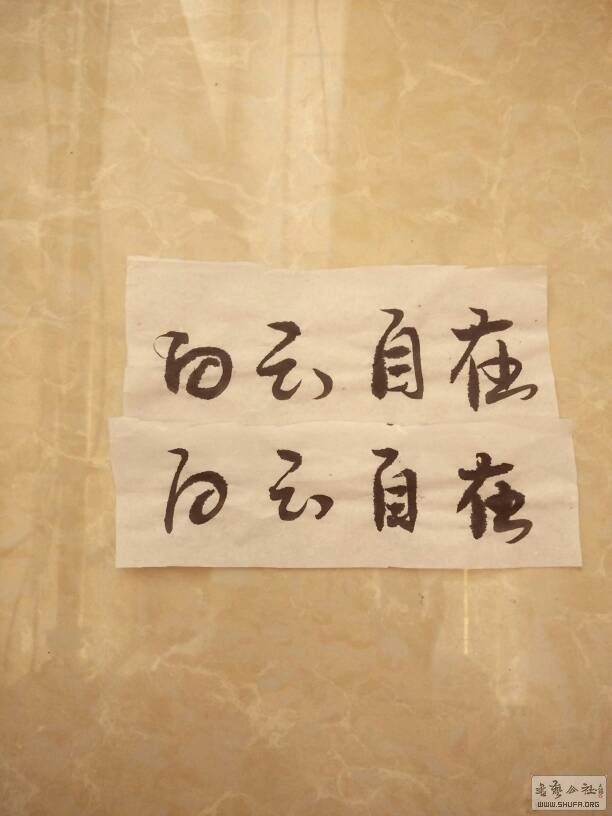 白云自在
白云自在
书艺公社
WWW.SHUFA.ORG